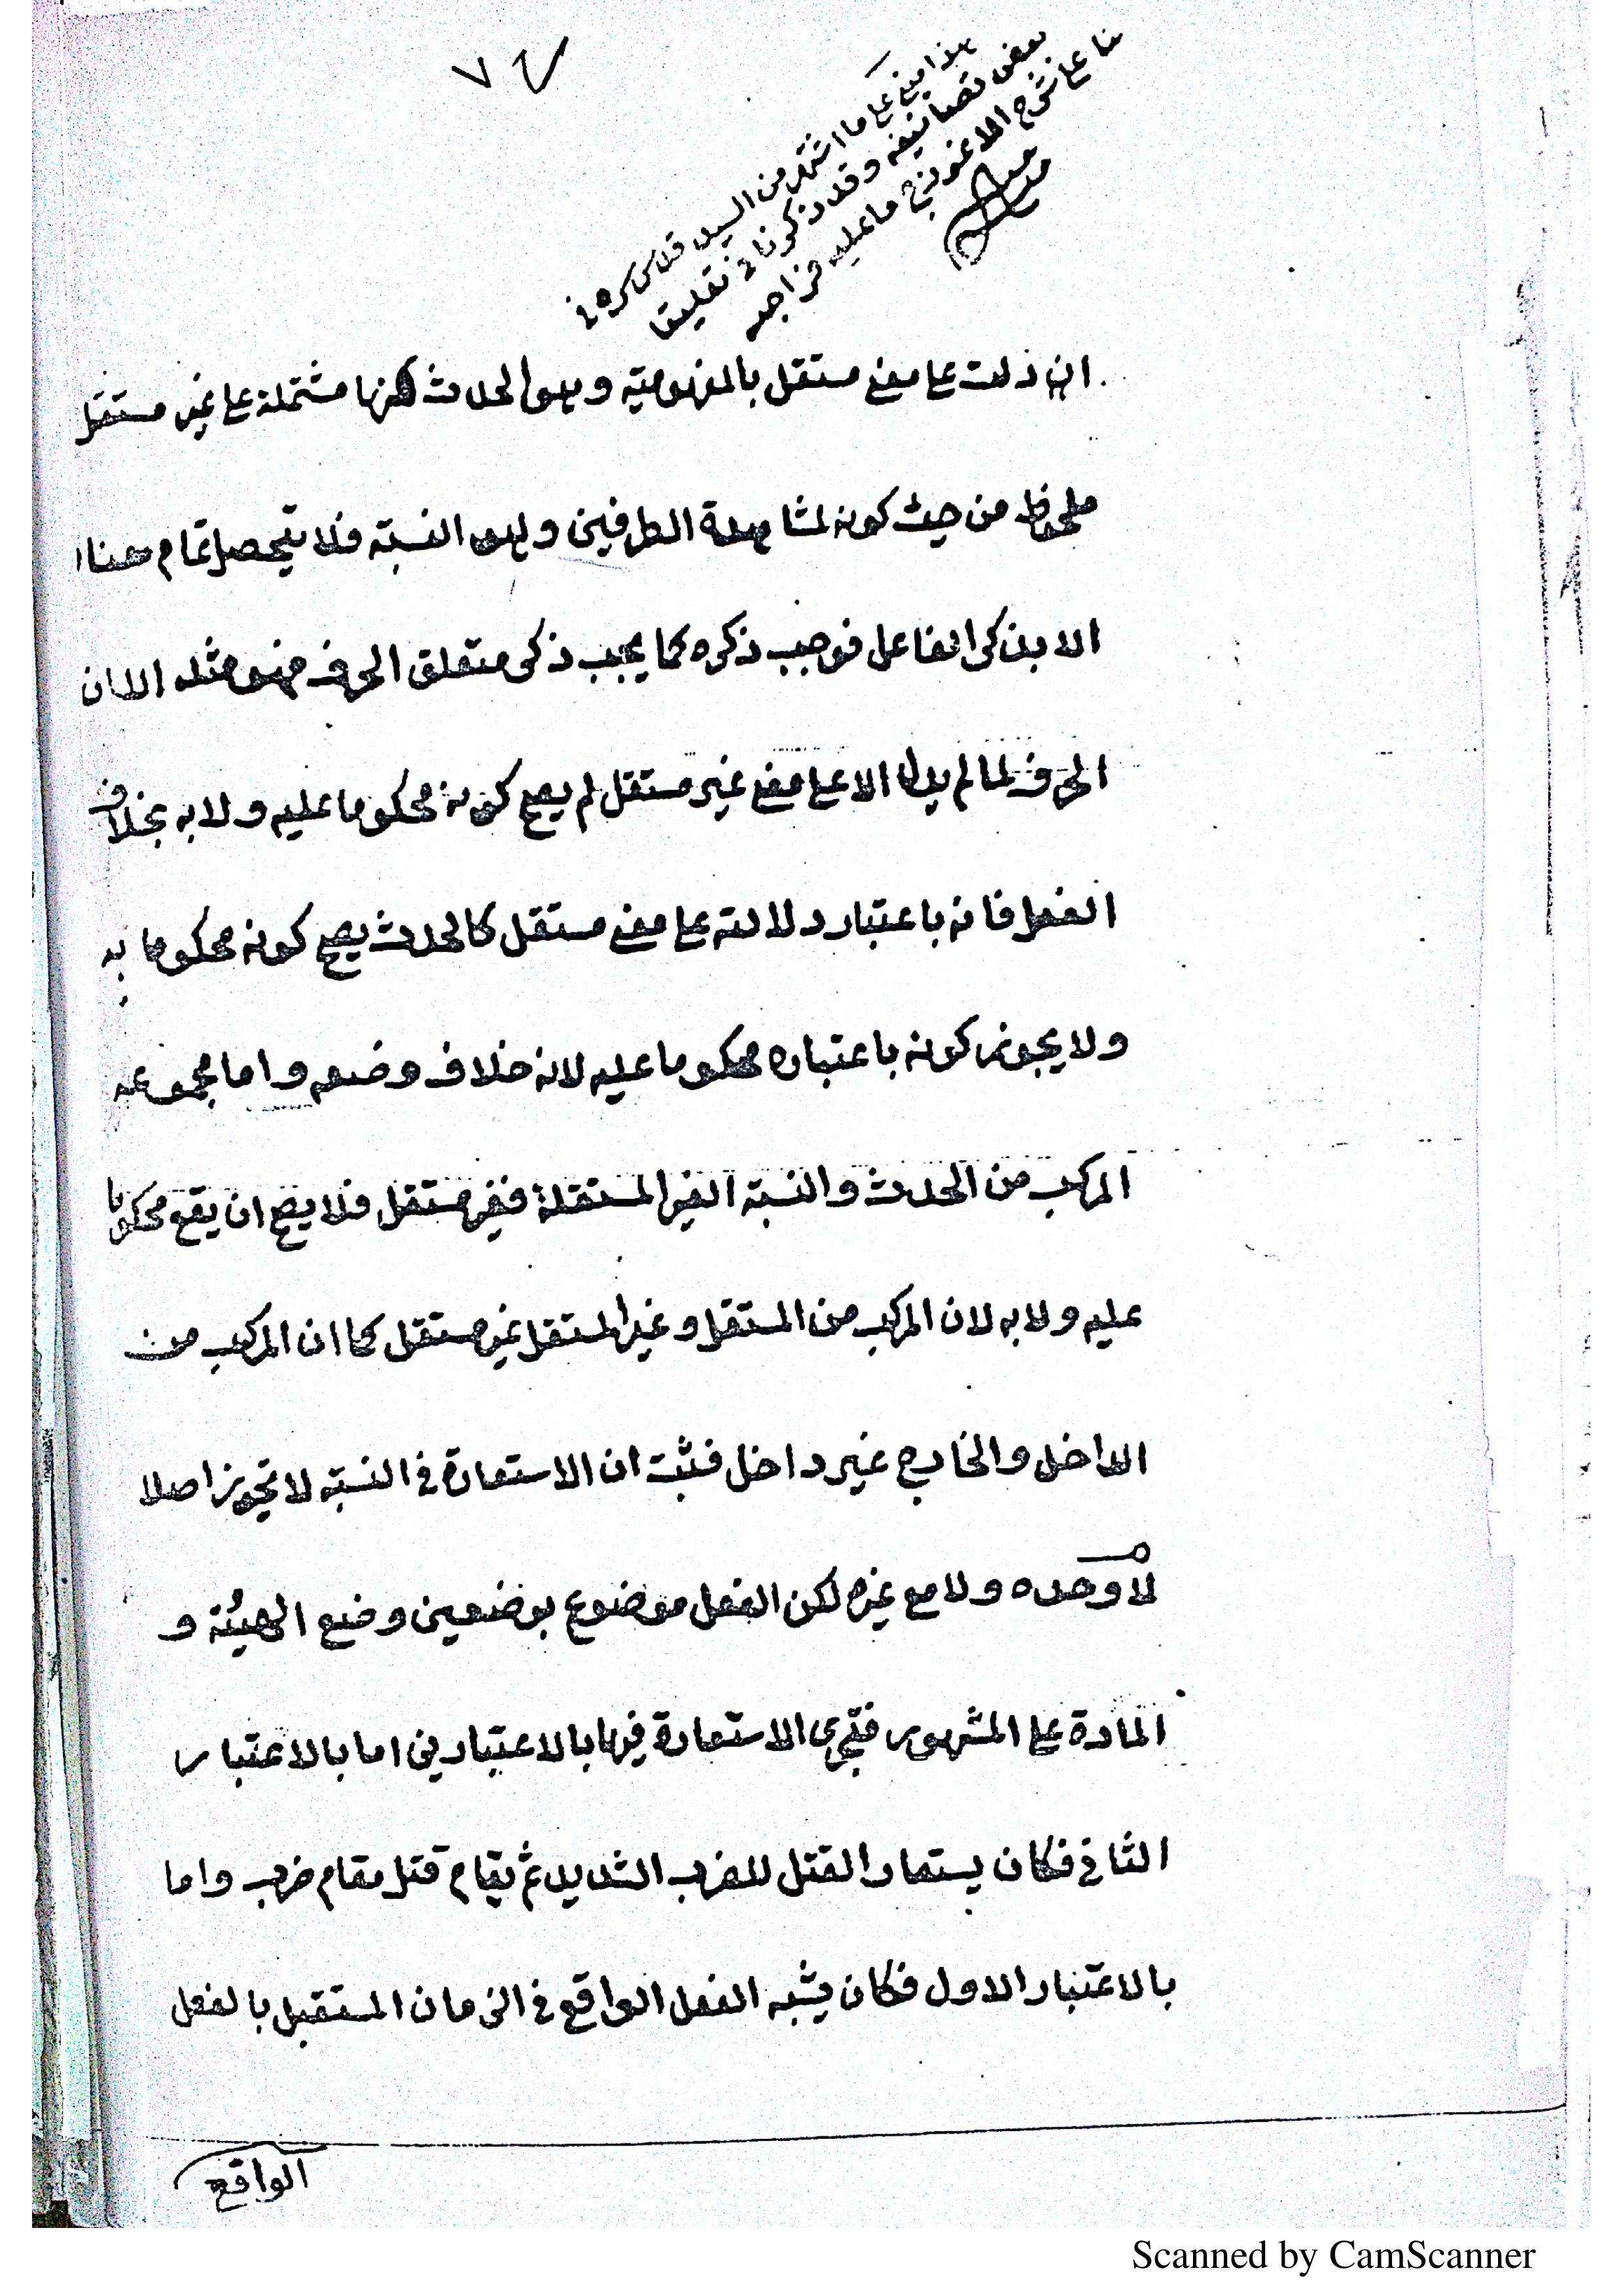 ٧
هذا مبني على ما اشتهر من السيد قدس سره في
بعض تصانيفه وقد ذكرنا في تعليقا
تنا على شرح الانموذج ما عليه فراجعه
ان دلت على معنى مستقل بالمفهومية وهو الحدث لكنها مشتملة على غير مستقل
ملحوظ من حيث كونه لمشاهدة الطرفين وهو النسبة فلا يتحصل تمام معناه
الا بذكر الفاعل فوجب ذكره كما يجب ذكر متعلق الحرف فهو مثله الا ان
الحرف لما لم يدل الا على معنى غير مستقل لم يصح كونه محكوما عليه ولا به بخلاف
الفعل فانه باعتبار دلالته على معنى مستقل كالحدث يصح كونه محكوما به
ولا يجوز كونه باعتباره محكوما عليه لانه خلاف وضعه واما مجموعه
المركب من الحدث والنسبة الغير المستقلة فغير مستقل فلا يصح ان يقع محكوما
عليه ولا به لان المركب من المستقل وغير المستقل غير مستقل كما ان المركب من
الداخل والخارج غير داخل فثبت ان الاستعارة في النسبة لا تجوز اصلا
لا وحده ولا مع غيره لكن الفعل موضوع بوضعين وضع الهيئة و
المادة على المشهور فتجري الاستعارة فيها بالاعتبارين اما بالاعتبار
الثاني فكان يستعار القتل للضرب الشديد ثم يقام قتل مقام ضرب واما
بالاعتبار الاول فكان يشبه الفعل الواقع في الزمان المستقبل بالفعل
الواقع
Scanned by CamScanner